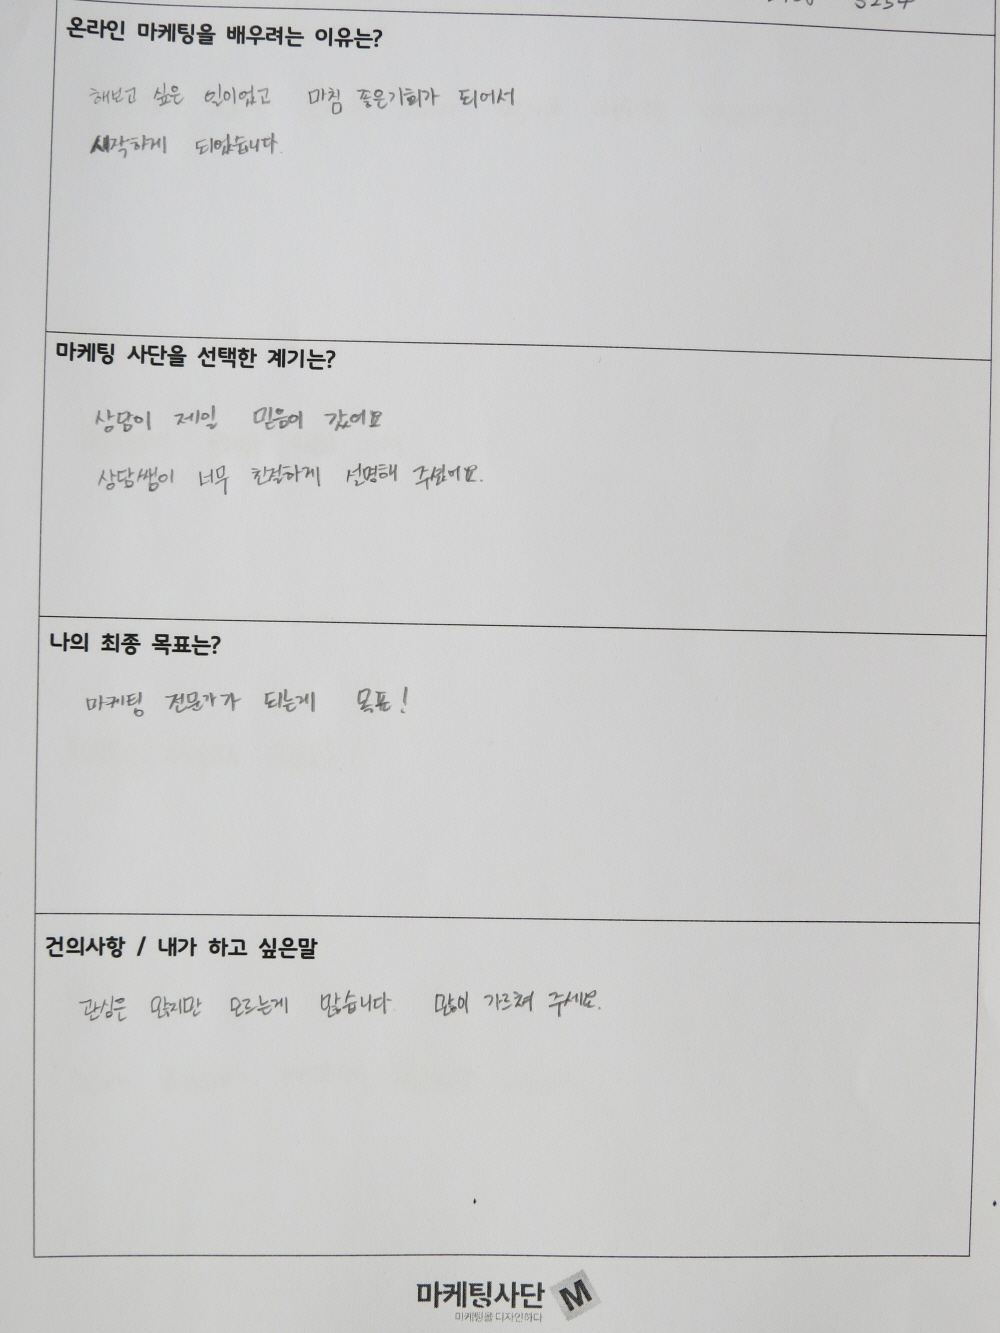 5254
온라인 마케팅을 배우려는 이유는?
해보고 싶은 일이었고 마침 좋은기회가 되어서
시작하게 되었습니다.
마케팅 사단을 선택한 계기는?
상담이 제일 믿음이 갔어요
상담쌤이 너무 친절하게 설명해 주셨어요.
나의 최종 목표는?
마케팅 전문가가 되는게 목표!
건의사항 / 내가 하고 싶은말
관심은 많지만 모르는게 많습니다. 많이 가르쳐 주세요.
마케팅사단 M
마케팅을 디자인하다